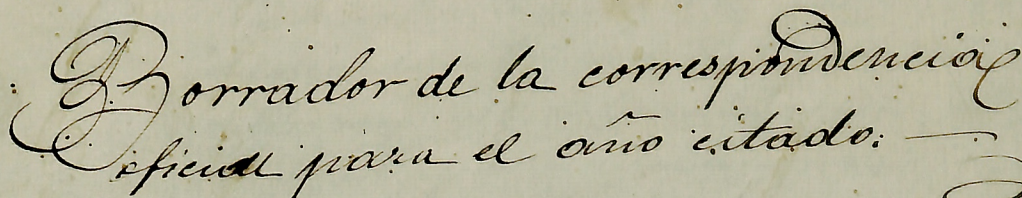 Borrador de la correspondencia
oficial para el año citado.